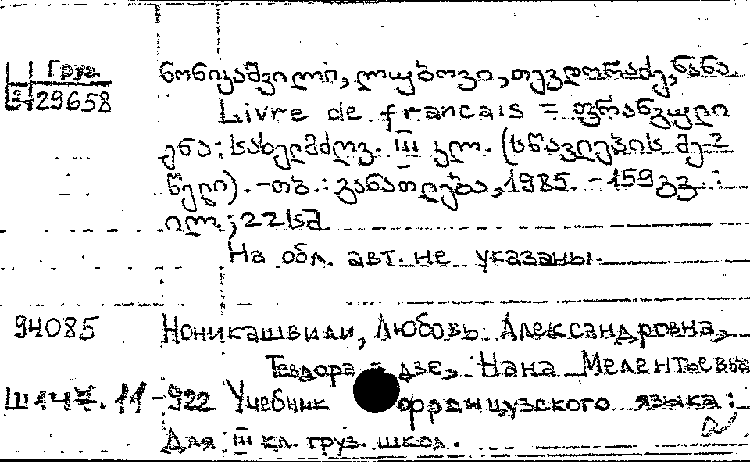 Груз
29658
ნონიკაშვილი, ლიუბოვი, თევდორაძე, ნანა
Livre de francais = ფრანგული
ენა: სახელმძღვ. III კლ. (სწავლების მე-2
წელი). - თბ.: განათლება, 1985. - 159 გვ :
ილ.; 22 სმ
На обл. авт. не указаны.
94085 Ноникашвили, Любовь Александровна,
Тевдора - дзе, Нана Мелентьевна
Ш147.11-922 Учебник французского языка:
Для III кл. груз. школ.